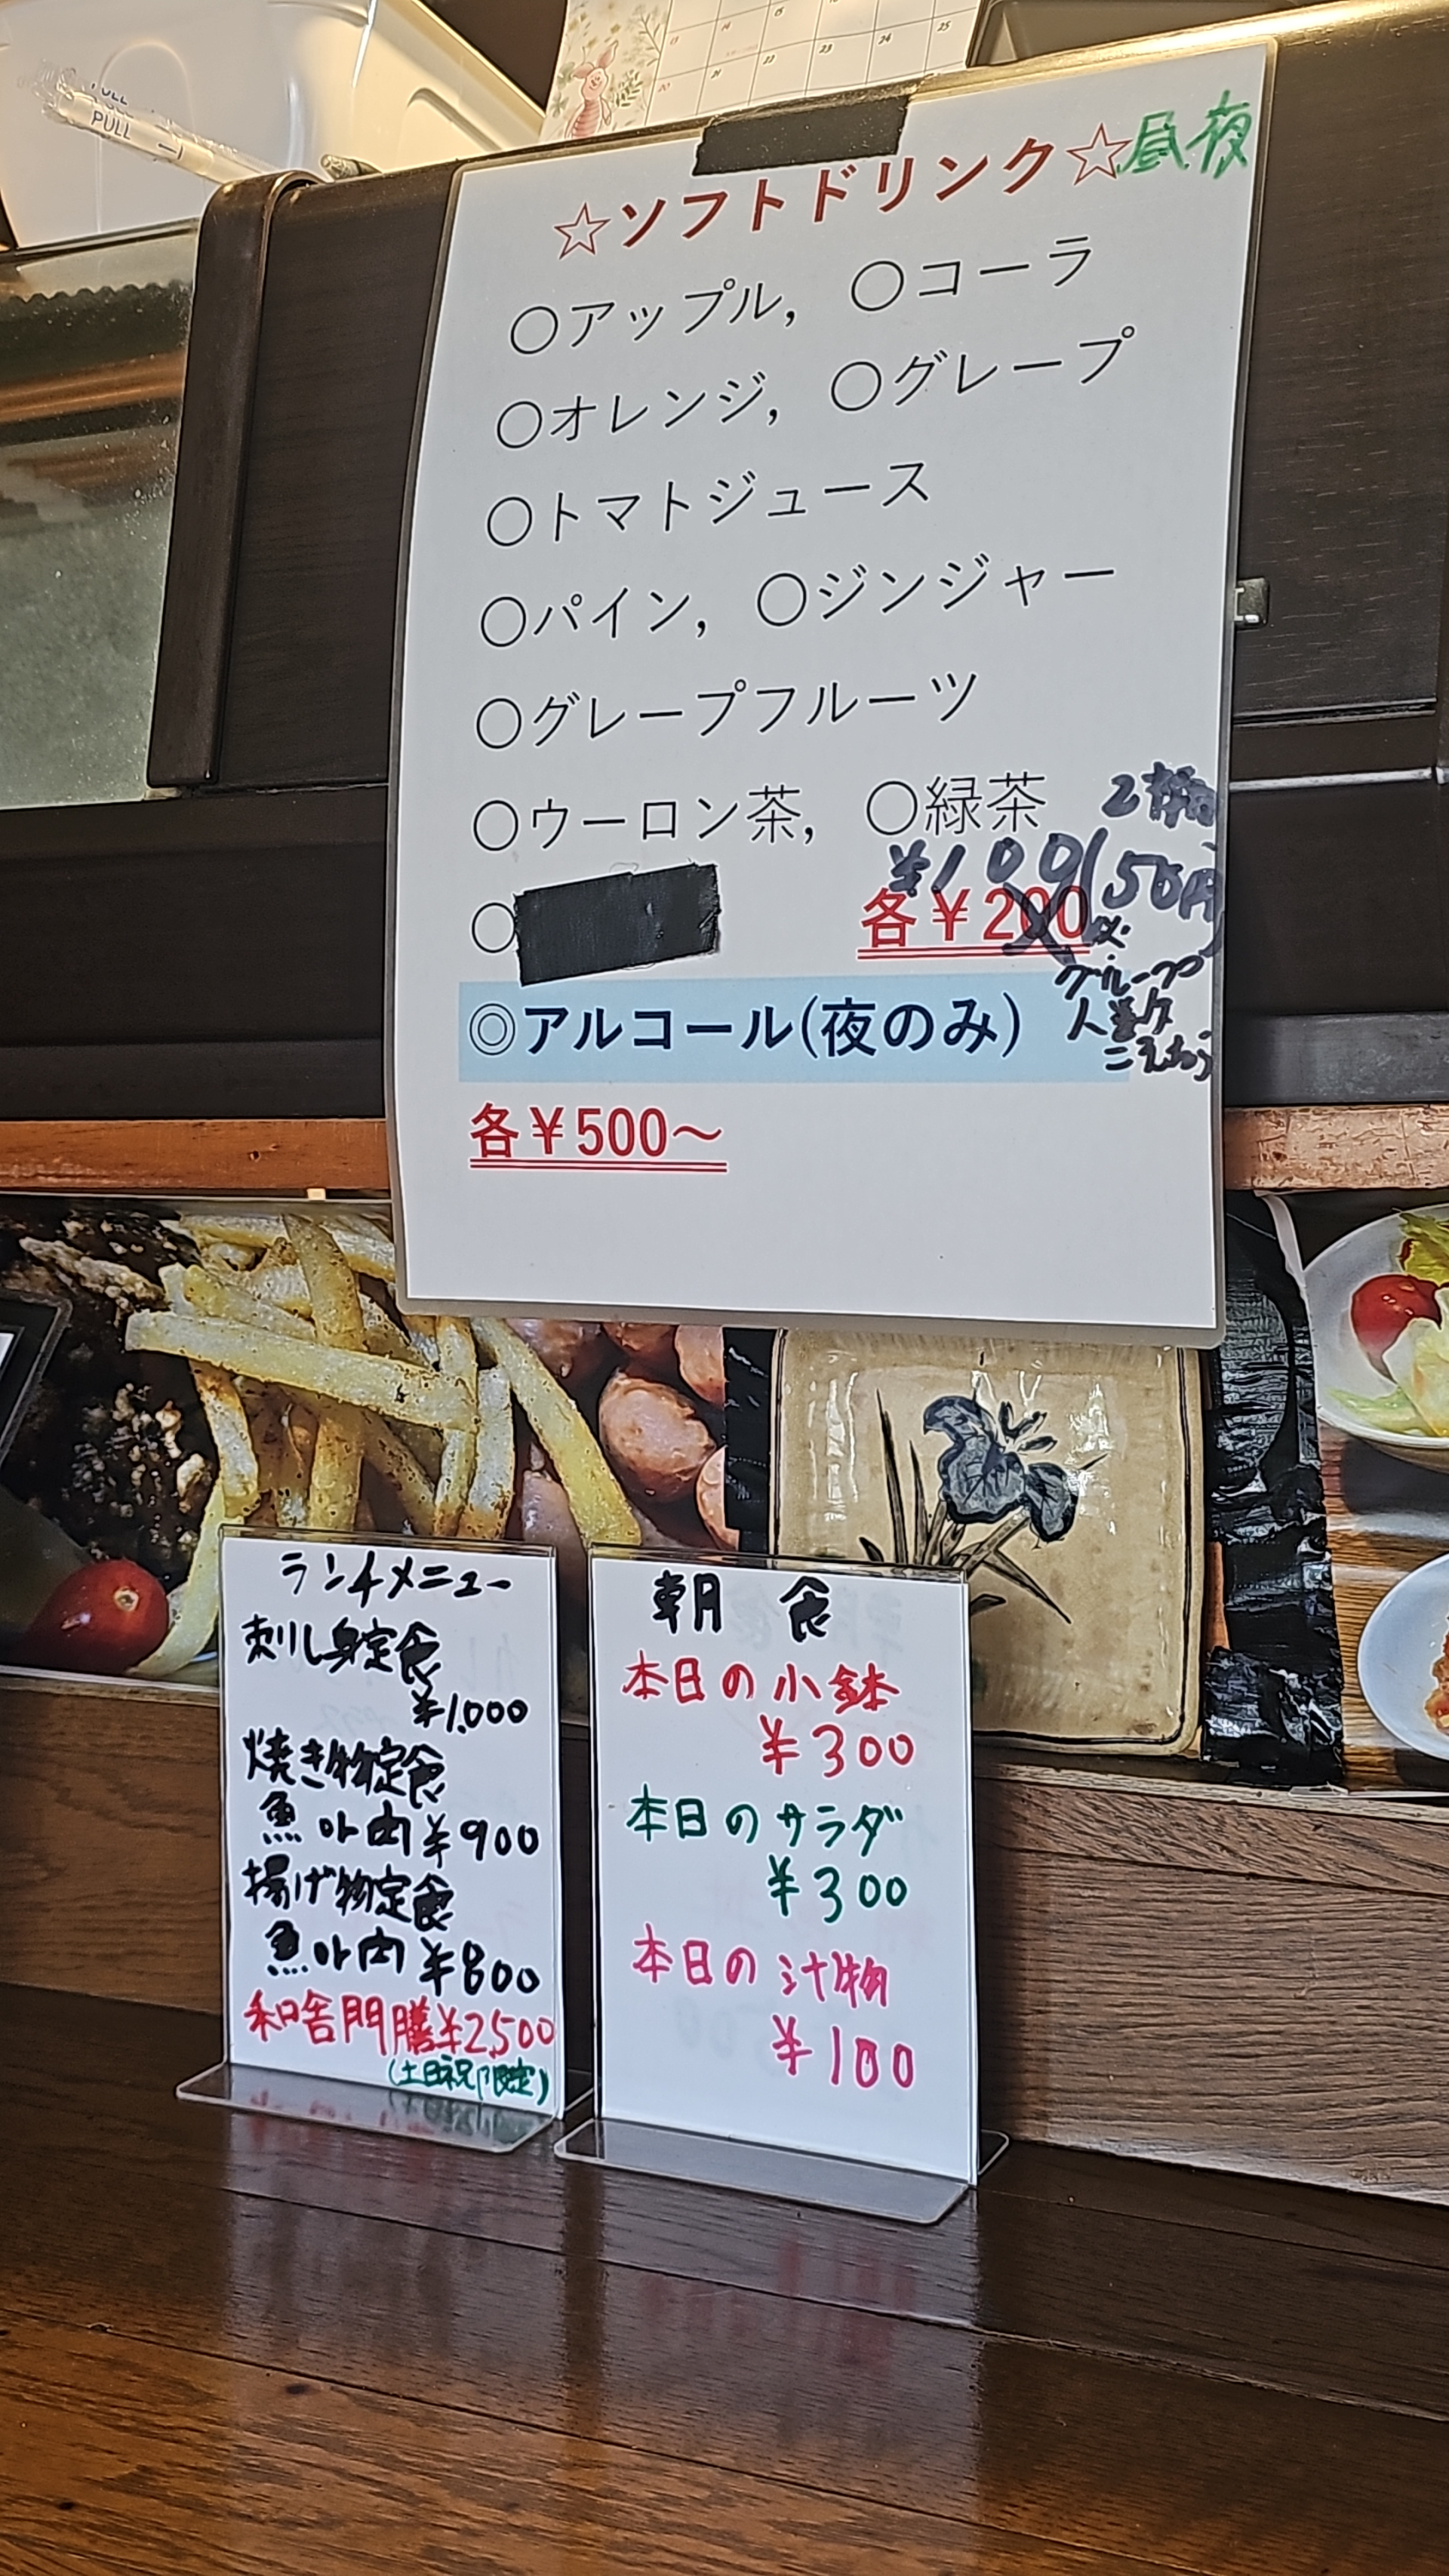 PULL
13 14 15
20 21 22 23 24 25
☆ソフトドリンク☆昼夜
○アップル, ○コーラ
○オレンジ, ○グレープ
○トマトジュース
○パイン, ○ジンジャー
○グレープフルーツ
○ウーロン茶, ○緑茶
2杯
¥100(50円)
○ 各¥200
グループ
人数分
◎アルコール(夜のみ)
各¥500~
ランチメニュー
刺し身定食
¥1,000
焼き物定食
魚or肉¥900
揚げ物定食
魚or肉¥800
和舎門膳¥2,500
(土日祝限定)
朝食
本日の小鉢
¥300
本日のサラダ
¥300
本日の汁物
¥100